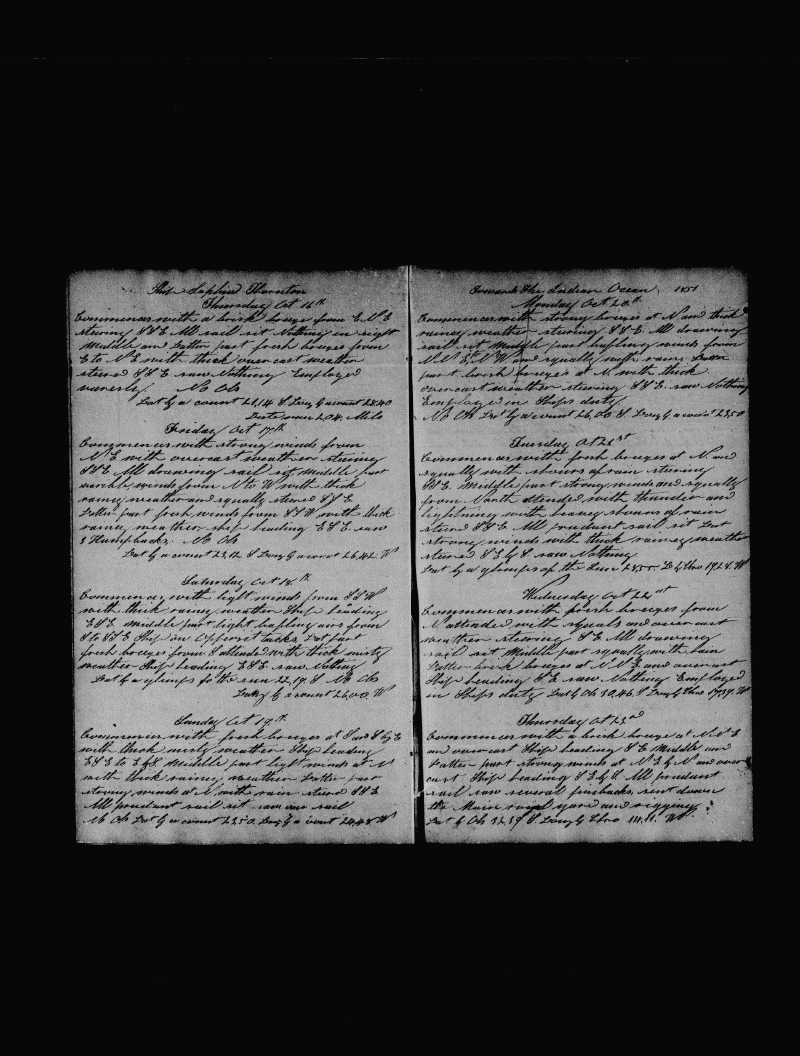 Ship Sophia Thornton
Thursday Oct 16th
Commences with a brisk breeze from E N E
steering S S E All sail sit Nothing in sight
Middle and Latter part fresh breezes from
E to N E with thick over cast weather
steered S S E saw Nothing Employed
variously. No Obs
Lat by a count 21,14 S Long by a count 28,40
Dista run 204, Mils
Friday Oct 17th
Commences with strong winds from
N E with overcast weather stering
S S E All drawing sail sit Middle part
variabl winds from N to W with thick
rainy weather and squally sterred S S E
Latter part fresh winds from S S W with thick
rainy weather ship heading E S E saw
Humpbacks. No Obs
Lat by a count 23,12 S Long by a count 26,42 W
Saturday Oct 18th
Commences with light winds from S S W
with thick rainy weather Ship heading
E S E middle part light bafling airs from
S to S S E Ship in Opposit tacks Lat part
fresh breezes from S attended with thick misty
weather Ship heading E S E. saw Nothing
Lat by a glimps fo the sun 22,19. S No Obs
Long by a count 26,00, W
Sunday Oct 19th
Commences with fresh breezes at S and S by E
with thick misty weather Ship heading
E S E to E by S Middle part light winds at N
with thick rainey weather Latter part
strong winds at N with rain steered S S E
All prudant sail sit saw one sail
No Obs Lat by a count 23,50. Long by a count 24,48 W
Towards the Indian Ocean 1851
Monday Oct 20th
Commences with strong breezes at N and thick
rainey weather steering S S E. All drawing
sail sit Middle part bafling winds from
N N E to N W and squally with rain Latter
part brisk breezes at N. with thick
overcast weather steering S S E. saw Nothing
Employed in Ships duty
No Ob Lat by a count 26,00 S Long by a count 23,50
Tuesday Oct 21st
Commences with fresh breezes at N and
squally with showrs of rain steering
S S E. Middle part strong winds and squally
from North attended with thunder and
lightning with heavy showrs of rain
steered S S E. All prudant sail sit Lat
strong winds with thick rainey weather
steered S E by S saw Nothing
Lat by a glimps of the Sun 28,55 Lo by Chro 19,28. W
Wednesday Oct 22nd
Commences with fresh breezes from
N attended with squals and over cast
weather steering S E All drawing
sail sit Middle part squally with rain
Latter brisk breezes at N N E and overcast
Ship heading S E saw Nothing Employed
in Ships duty Lat by Ob 30,46 S Long by Chro 17,39. W
Thursday Oct 23rd
Commences with a brisk breeze at N N E
and over cast Ship heading S E Middle and
Latter part strong winds at N E by N and over
cast Ship heading S E by E All prudant
sail saw several finbacks, sent down
the Main royal yard and rigging
Lat by Ob 32,37 S. Long by Chro 14,11. W